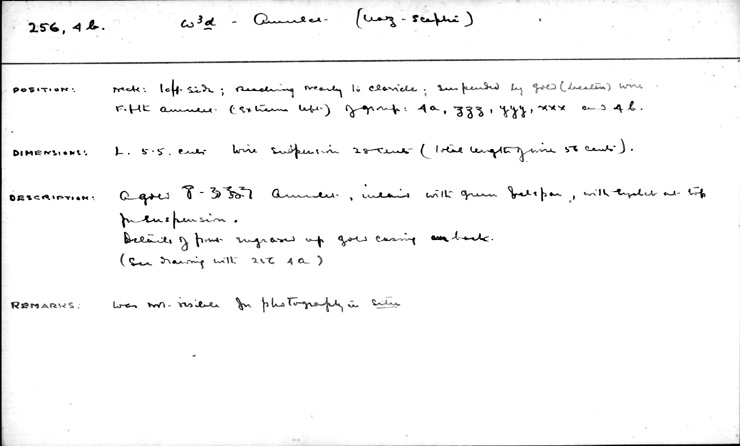 256, 4b. W3d - Amulet. (Uaz-sceptre)
POSITION: Neck: left side; reaching nearly to clavicle; suspended by gold (beaten) wire
Fifth amulet (extreme left) of group: 4a, zzz, yyy, xxx and 4b.
DIMENSIONS: L. 5.5. cents Wire suspension 28 cents (total length of wire 56 cents).
DESCRIPTION: A gold amulet, inlaid with green felspar, with eyelet at top
for suspension.
Details of front engraved up gold casing on back.
(See drawing with 256 4a)
REMARKS: Was not visible for photography in situ